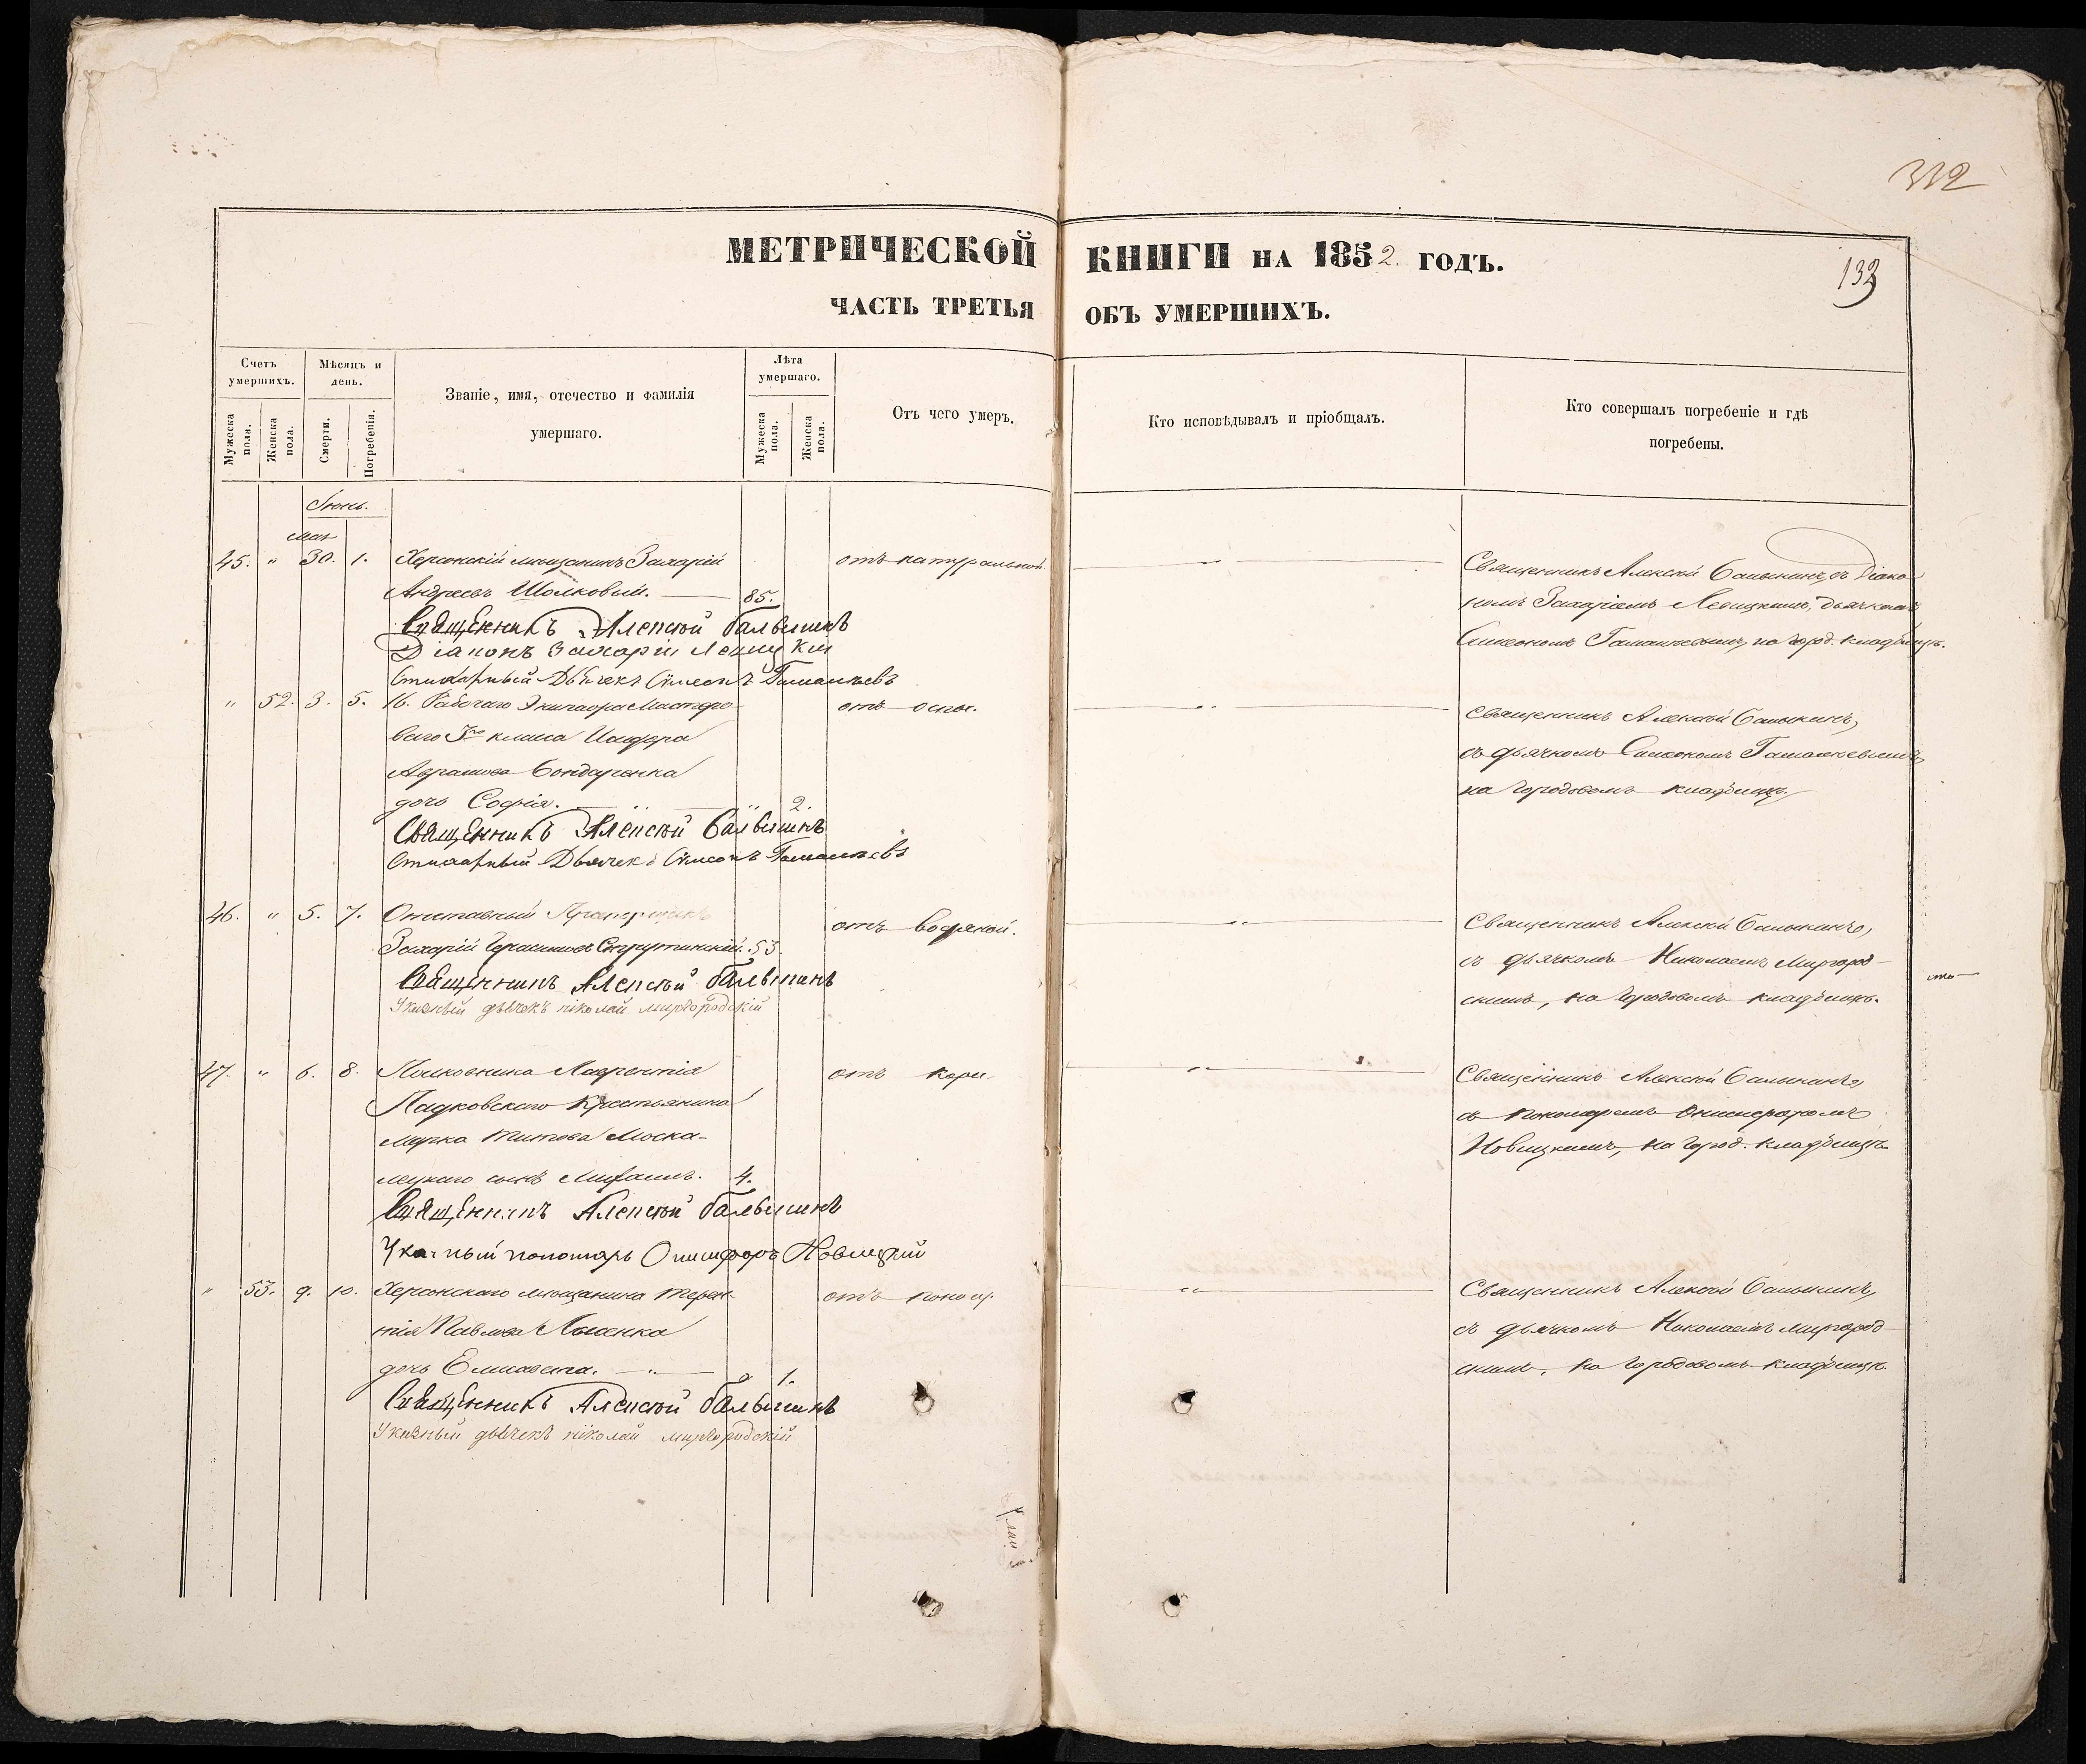 332
МЕТРИЧЕСКОЙ КНИГИ НА 1852. ГОДЪ.
132
ЧАСТЬ ТРЕТЬЯ ОБЪ УМЕРШИХЪ.
Счетъ умершихъ.
Мужеска пола.
Женска пола.
Мѣсяцъ и день.
Смерти.
Погребенія.
Званіе, имя, отечество и фамилія
умершаго.
Лѣта умершаго.
Мужеска пола.
Женска пола.
Отъ чего умеръ.
Кто исповѣдывалъ и пріобщалъ.
Кто совершалъ погребеніе и гдѣ
погребены.
Іюнь.
мая
45. " 30. 1. Херсонскій мѣщанинъ Захарій отъ натуральной.
Андреевъ Шолковый. 85.
Священникъ Алексѣй Балыкинъ съ Діако
номъ Захаріемъ Левицкимъ, дьячкомъ
Симеономъ на Город. кладбищѣ.
Священникъ Алексѣй Балыкинъ
Діаконъ Захарій Левицкій
Стихарный Дьячекъ Симеонъ
" 52. 3. 5. 16. Рабочаго Экипажа Мастеро
ваго 3го класса
Абрамова Бондаренка
дочь Софія. " 2.
отъ оспы.
Священникъ Алексѣй Балыкинъ,
съ дьячкомъ Симеономъ
на Городовомъ кладбищѣ.
Священникъ Алексѣй Балыкинъ
Стихарный Дьячекъ Симеонъ
46. " 5. 7. Отставный Прапорщикъ
Захарій Герасимовъ 53.
отъ водяной.
Священникъ Алексѣй Балыкинъ,
съ дьячкомъ Николаемъ Миргород-
скимъ, на Городовомъ кладбищѣ.
Священникъ Алексѣй Балыкинъ
Указный дьячекъ Николай Миргородскій
47. " 6. 8. Полковника Лаврентія
крестьянина
Марка Титова Моска-
лецкаго сынъ 4.
отъ кори.
Священникъ Алексѣй Балыкинъ,
съ пономаремъ Онисифоромъ
Новицкимъ, на Город. кладбищѣ
Священникъ Алексѣй Балыкинъ
Указный пономарь Онисифоръ Новицкій
" 53. 9. 10. Херсонскаго мѣщанина Терен
тія Павлова Лысенка
дочь Елисавета. " 1.
отъ поноса.
Священникъ Алексѣй Балыкинъ,
съ дьячкомъ Николаемъ Миргород-
скимъ, на Городовомъ кладбищѣ.
Священникъ Алексѣй Балыкинъ
Указный дьячекъ Николай Миргородскій